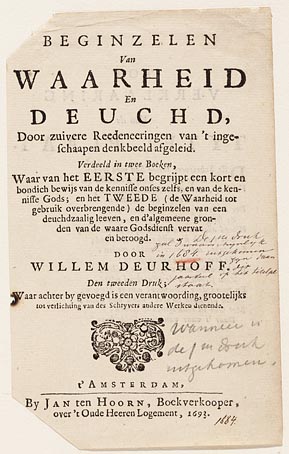 BEGINZELEN
Van
WAARHEID
En
DEUCHD,
Door zuivere Reedeneeringen van 't inge-
schaapen denkbeeld afgeleid.
Verdeeld in twee Boeken,
Waar van het EERSTE begrijpt een kort en
bondich bewijs van de kennisse onses zelfs, en van de ken-
nisse Gods; en het TWEEDE (de Waarheid tot
gebruik overbrengende) de beginzelen van een
deuchdzaalig leeven, en d'algemeene gron-
den van de waare Godsdienst vervat
en betoogd.
De 1e druk
in 1684
DOOR
WILLEM DEURHOFF,
Den tweeden Druk;
Waar achter by gevoegd is een verantwoording, grootelijks
tot verlichting van des Schryvers andere Werken dienende.
Wanneer is
de 1e druk
uitgekomen
t'AMSTERDAM,
By JAN ten HOORN, Boekverkooper,
over 't Oude Heeren Logement, 1693.
1684.